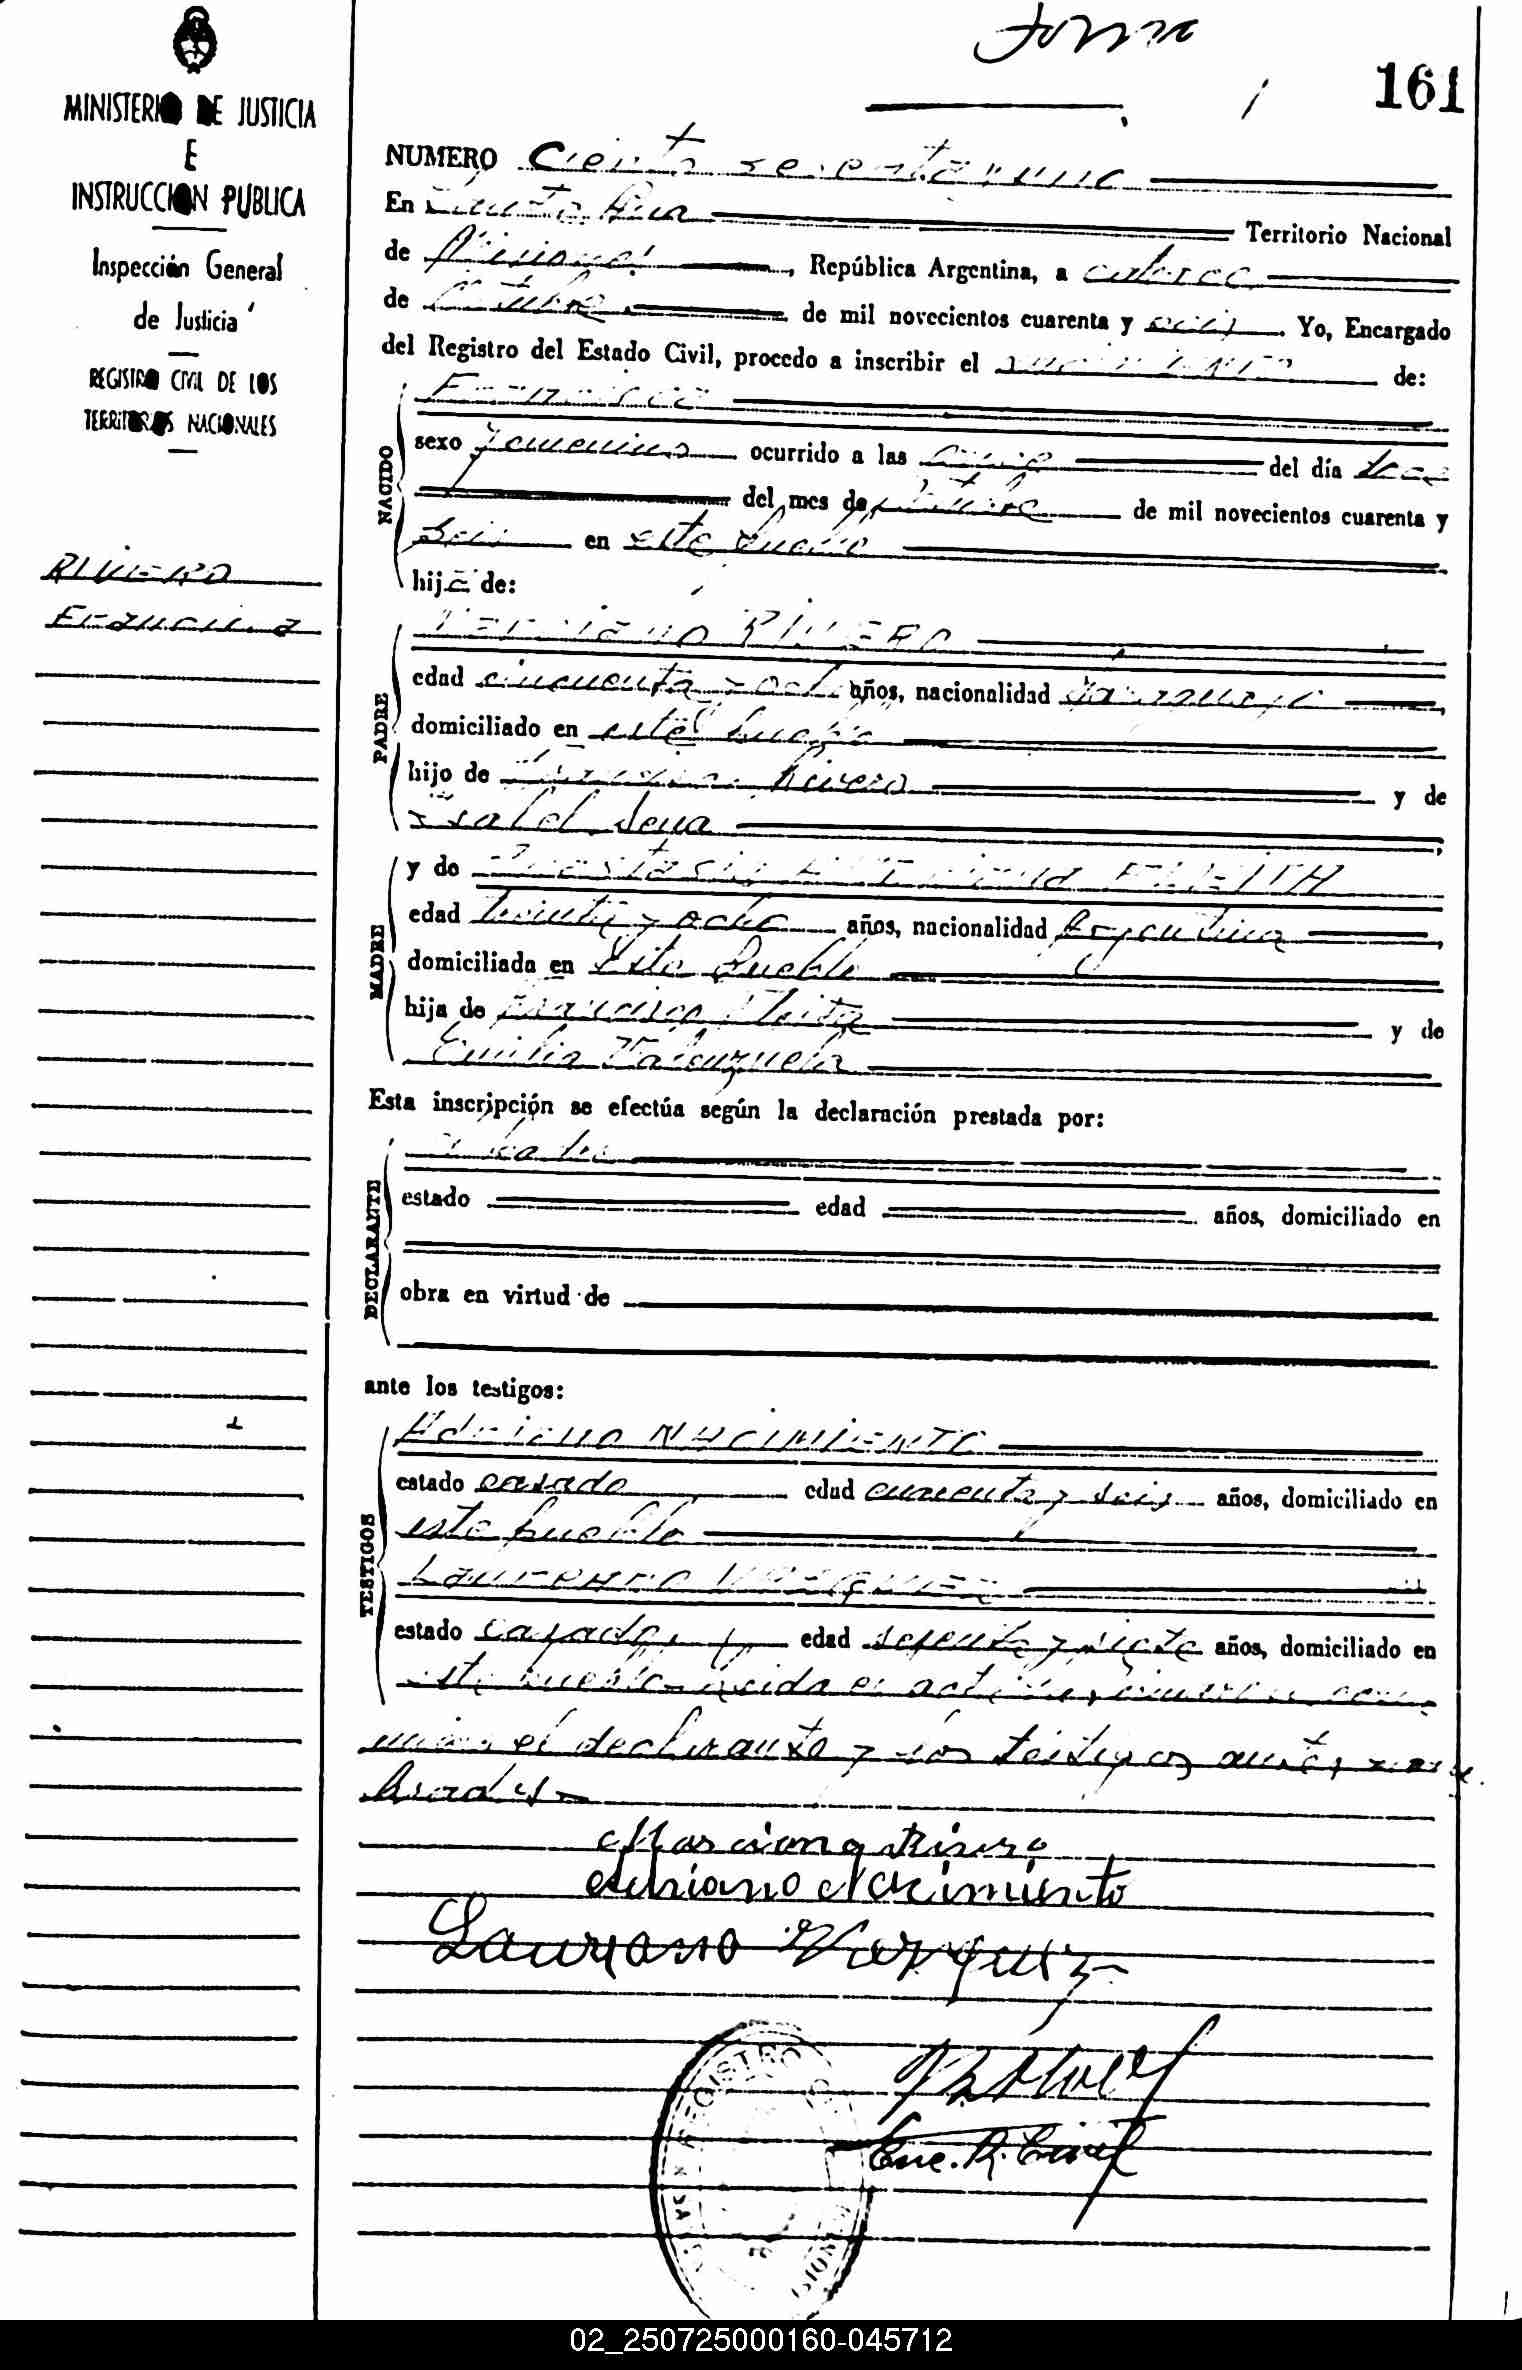 Forma
161
MINISTERIO DE JUSTICIA
E
INSTRUCCION PUBLICA
Inspección General
de Justicia
REGISTRO CIVIL DE LOS
TERRITORIOS NACIONALES
RIVERO
Francisca
NUMERO Ciento sesenta y uno
En Santa Ana Territorio Nacional
de Misiones, República Argentina, a catorce
de Octubre de mil novecientos cuarenta y seis. Yo, Encargado
del Registro del Estado Civil, procedo a inscribir el nacimiento de:
NACIDO
Francisca
sexo femenino ocurrido a las del día trece
del mes de Octubre de mil novecientos cuarenta y
seis en este pueblo
hija de:
PADRE
RIVERO
edad cincuenta y ocho años, nacionalidad paraguayo,
domiciliado en este pueblo
hijo de Rivero y de
Isabel
MADRE
y de
edad treinta y ocho años, nacionalidad Argentina,
domiciliada en Este Pueblo
hija de Francisco y de
Emilia Valenzuela
Esta inscripción se efectúa según la declaración prestada por:
DECLARANTE
el padre
estado edad años, domiciliado en
obra en virtud de
ante los testigos:
TESTIGOS
Adriano NACIMIENTO
estado casado edad cuarenta y seis años, domiciliado en
este pueblo
Laureano VAZQUEZ
estado casado edad y siete años, domiciliado en
este pueblo Leida el acta
el declarante y los testigos antes nom
brados.-
Marciano Rivero
Adriano Nacimiento
Laureano Vazquez
Enc. R. Civil
REGISTRO
02_250725000160-045712